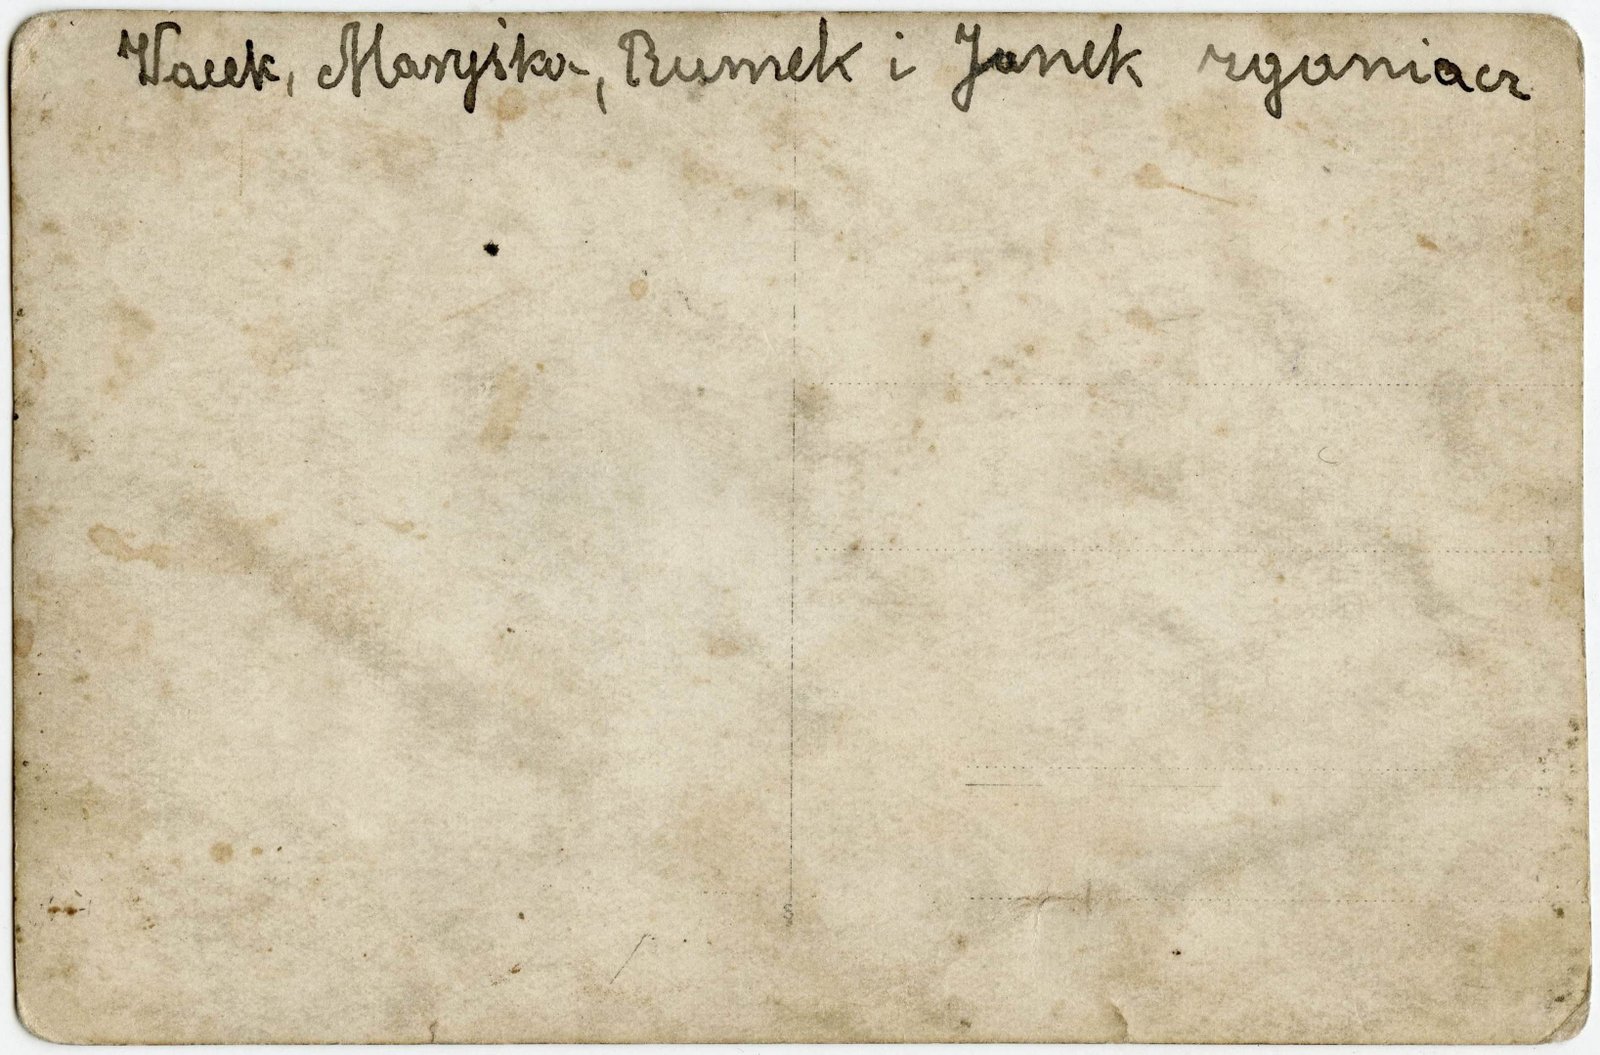 Wacek, Maryśka, Rumek i Janek zganiacz